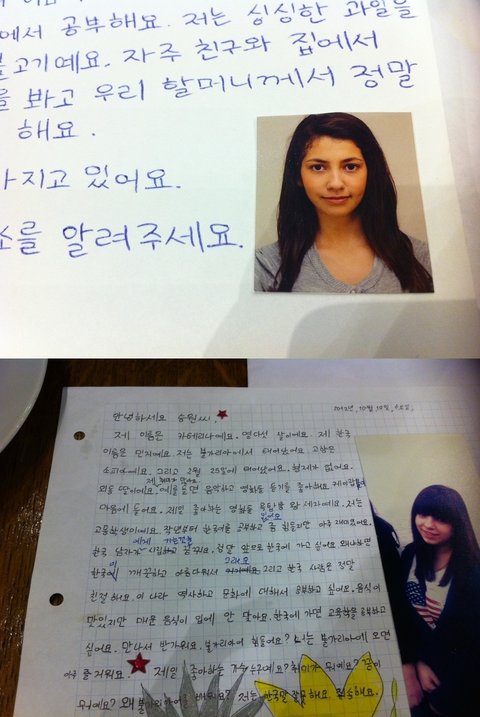 에서 공부해요. 저는 싱싱한 과일을
불고기예요. 자주 친구와 집에서
를 봐고 우리 할머니께서 정말
해요.
가지고 있어요.
소를 알려주세요.
안녕하세요 승원씨,
2012년, 10월 10일, 수요일,
제 이름은 카테리나예요. 열다섯 살이예요. 제 한국
이름은 민지예요. 저는 불가리아에서 태어났어요. 고향은
소피아예요. 그리고 2월 25일에 태어났어요. 형제가 없어요.
외동 딸이에요. 예를 들면 음악하고 영화를 듣기를 좋아해요. 케이팝
마음에 들어요. 제일 좋아하는 영화를 세자예요. 저는
고등학생이예요. 작년부터 한국어를 공부하고 좀 힘들지만 아주 재미있어요.
한국 남자가 정말 앞으로 한국에 가고 싶어요 왜냐하면
한국 깨끗하고 아름다워서 그리고 한국 사람은 정말
친절해요. 이 나라 역사하고 문화에 대해서 공부하고 싶어요. 음식이
맛있지만 매운 음식이 입에 안 맞아요. 한국에 가면 교육학을 공부하고
싶어요. 만나서 반가워요. 불가리아어 힘들어요? 너는 불가리아에 오면
아주 즐거워요. 제일 좋아하는 가수는 누구예요? 취미가 뭐예요? 꿈이
뭐예요? 왜 불가리아어를 배워요? 저는 한국말 잘못해요. 죄송해요.